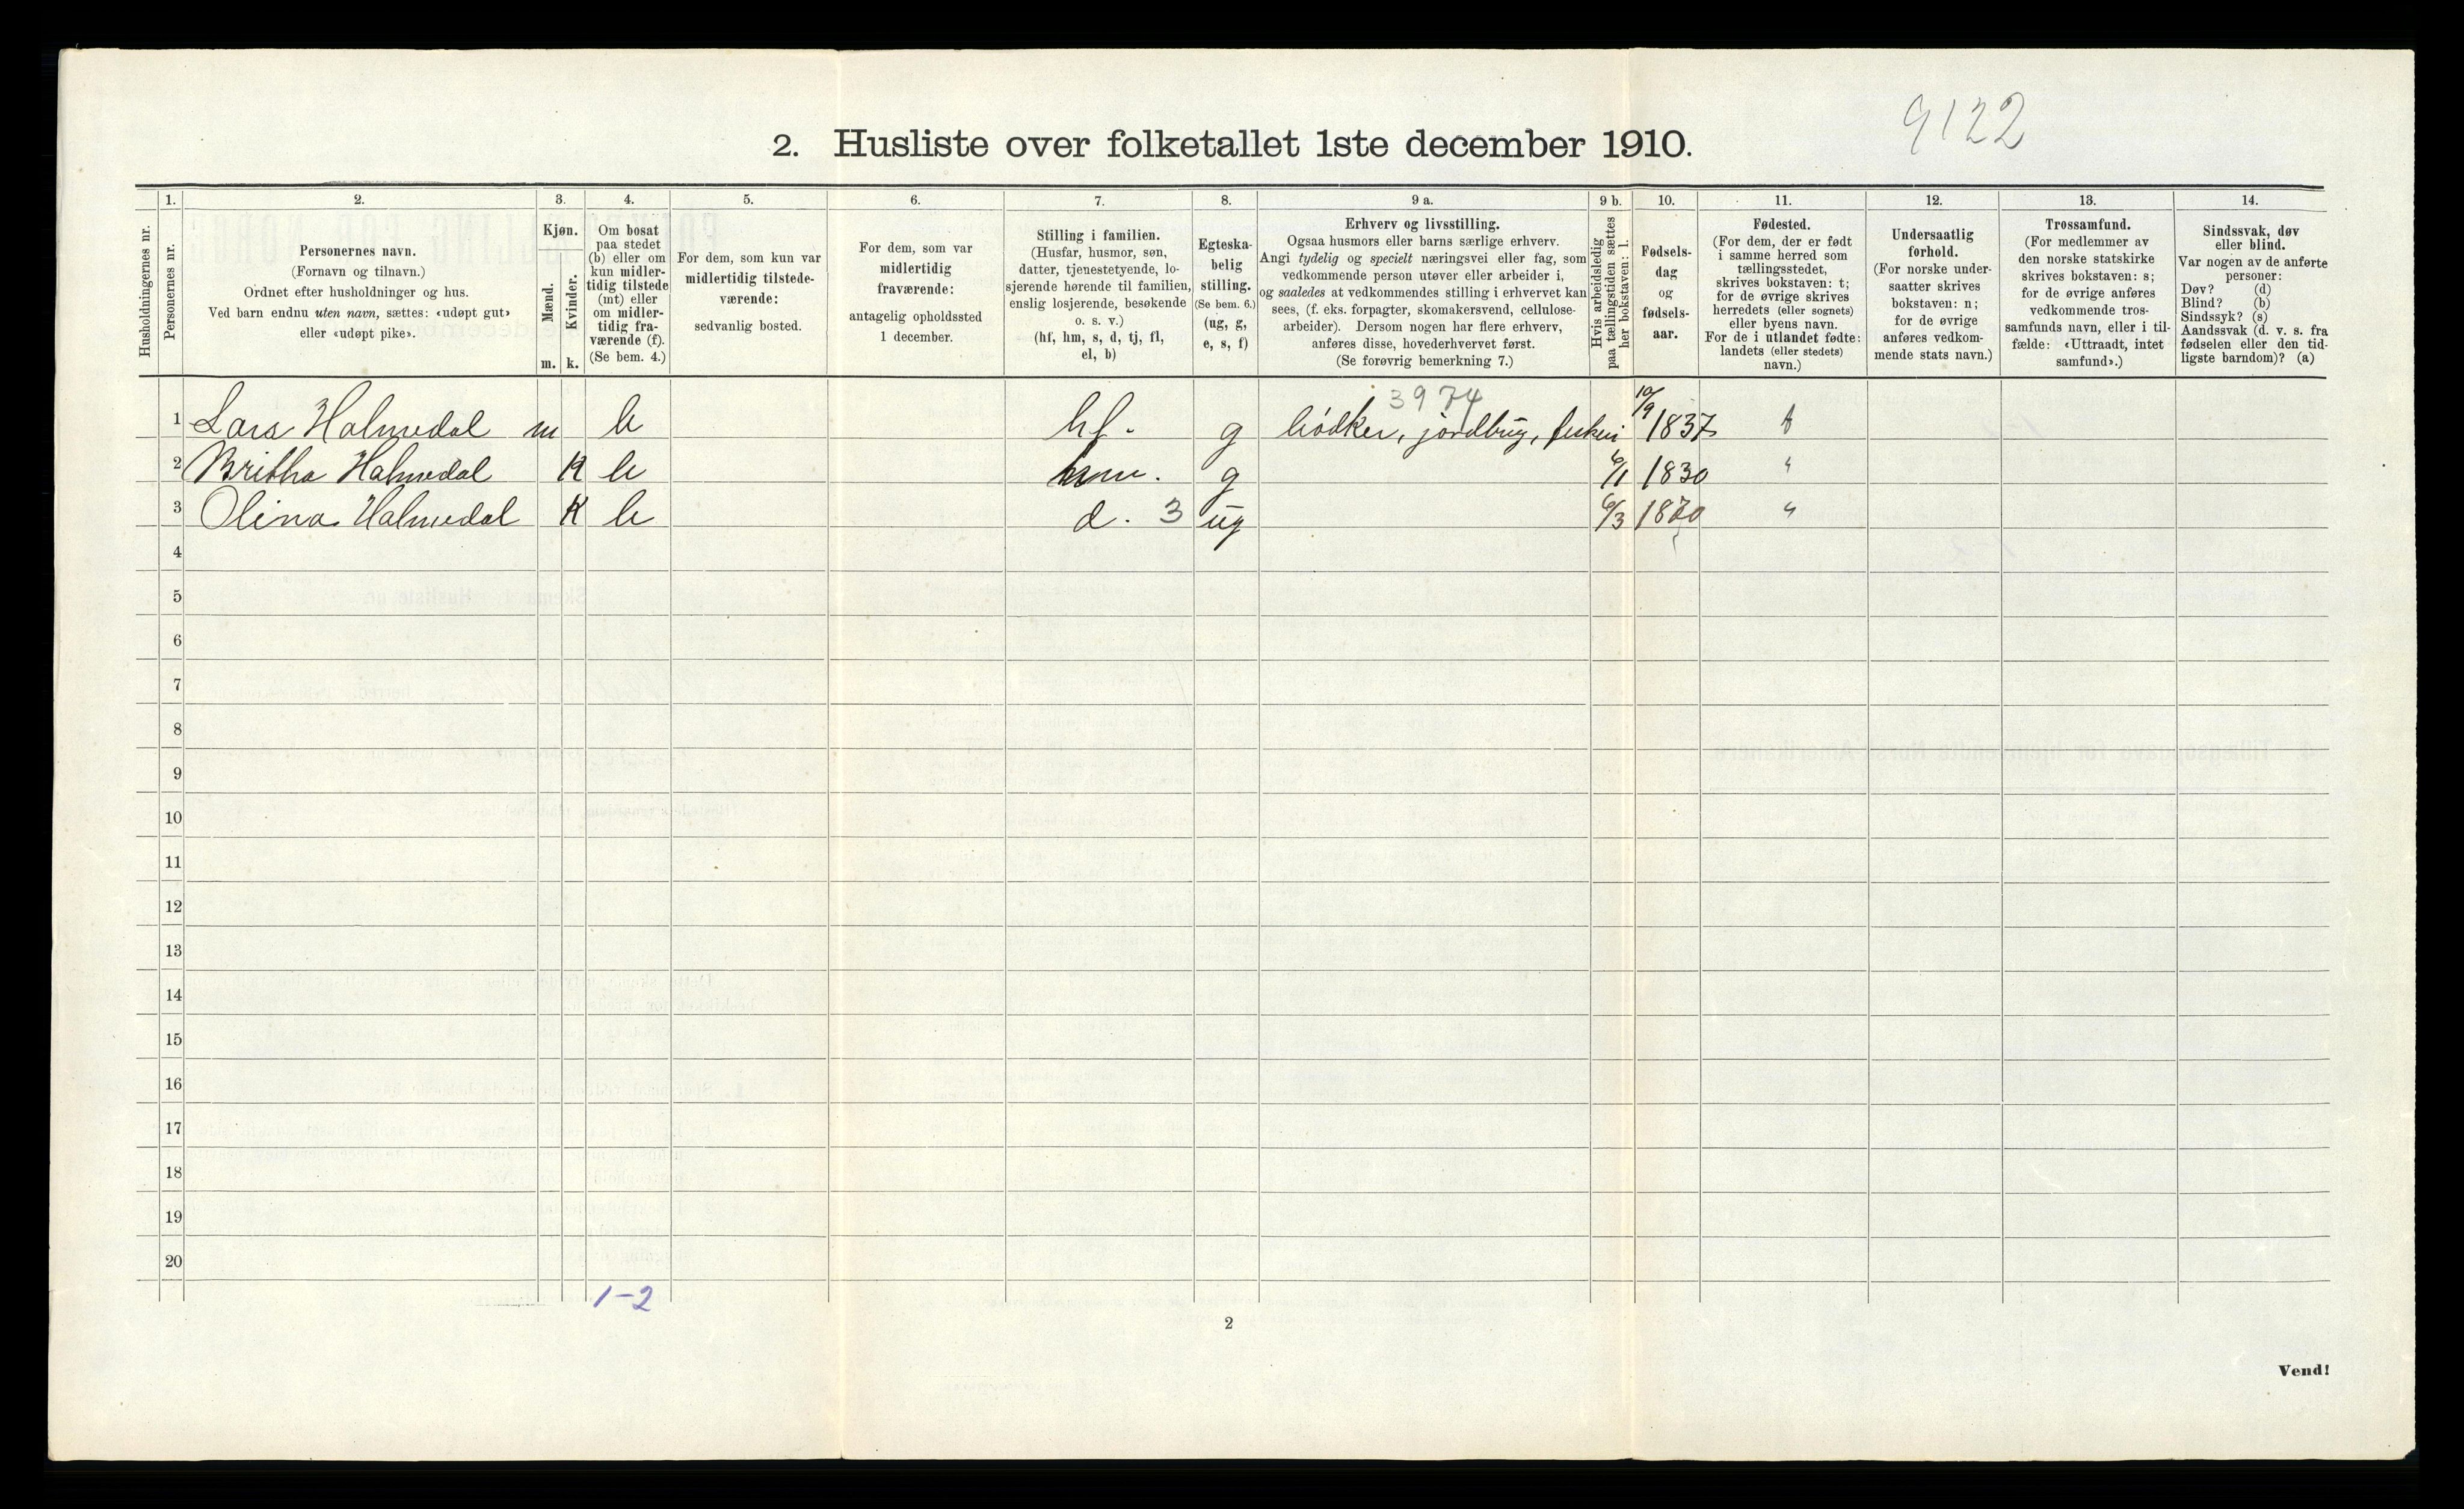 9122
2. Husliste over folketallet 1ste december 1910.
Husholdningernes nr.
1.
Personernes nr.
2.
Personernes navn.
(Fornavn og tilnavn.)
Ordnet efter husholdninger og hus.
Ved barn endnu uten navn, sættes: «udøpt gut»
eller «udøpt pike».
3.
Kjøn.
Mænd.
Kvinder.
m. k.
4.
Om bosat
paa stedet
(b) eller om
kun midler-
tidig tilstede
(mt) eller
om midler-
tidig fra-
værende (f).
(Se bem. 4.)
5.
For dem, som kun var
midlertidig tilstede-
værende:
sedvanlig bosted.
6.
For dem, som var
midlertidig
fraværende:
antagelig opholdssted
1 december.
7.
Stilling i familien.
(Husfar, husmor, søn,
datter, tjenestetyende, lo-
sjerende hørende til familien,
enslig losjerende, besøkende
o. s. v.)
(hf, hm, s, d, tj, fl,
el, b)
8.
Egteska-
belig
stilling.
(Se bem. 6.)
(ug, g,
e, s, f)
9 a.
Erhverv og livsstilling.
Ogsaa husmors eller barns særlige erhverv.
Angi tydelig og specielt næringsvei eller fag, som
vedkommende person utøver eller arbeider i,
og saaledes at vedkommendes stilling i erhvervet kan
sees, (f. eks. forpagter, skomakersvend, cellulose-
arbeider). Dersom nogen har flere erhverv,
anføres disse, hovederhvervet først.
(Se forøvrig bemerkning 7.)
9 b.
Hvis arbeidsledig
paa tællingstiden sættes
her bokstaven: l.
10.
Fødsels-
dag
og
fødsels-
aar.
11.
Fødested.
(For dem, der er født
i samme herred som
tællingsstedet,
skrives bokstaven: t;
for de øvrige skrives
herredets (eller sognets)
eller byens navn.
For de i utlandet fødte:
landets (eller stedets)
navn.)
12.
Undersaatlig
forhold.
(For norske under-
saatter skrives
bokstaven: n;
for de øvrige
anføres vedkom-
mende stats navn.)
13.
Trossamfund.
(For medlemmer av
den norske statskirke
skrives bokstaven: s;
for de øvrige anføres
vedkommende tros-
samfunds navn, eller i til-
fælde: «Uttraadt, intet
samfund».)
14.
Sindssvak, døv
eller blind.
Var nogen av de anførte
personer:
Døv? (d)
Blind? (b)
Sindssyk? (s)
Aandssvak (d. v. s. fra
fødselen eller den tid-
ligste barndom)? (a)
3974
1 Lars Halmedal m b hf. g bødker, jordbrug, fiskeri 10/9 1837 t
2 Britha Halmedal K b hm. g 6/1 1830 "
3 Olina Halmedal K b d. 3 ug 6/3 1870 "
4
5
6
7
8
9
10
11
12
13
14
15
16
17
18
19
20
1-2
2
Vend!